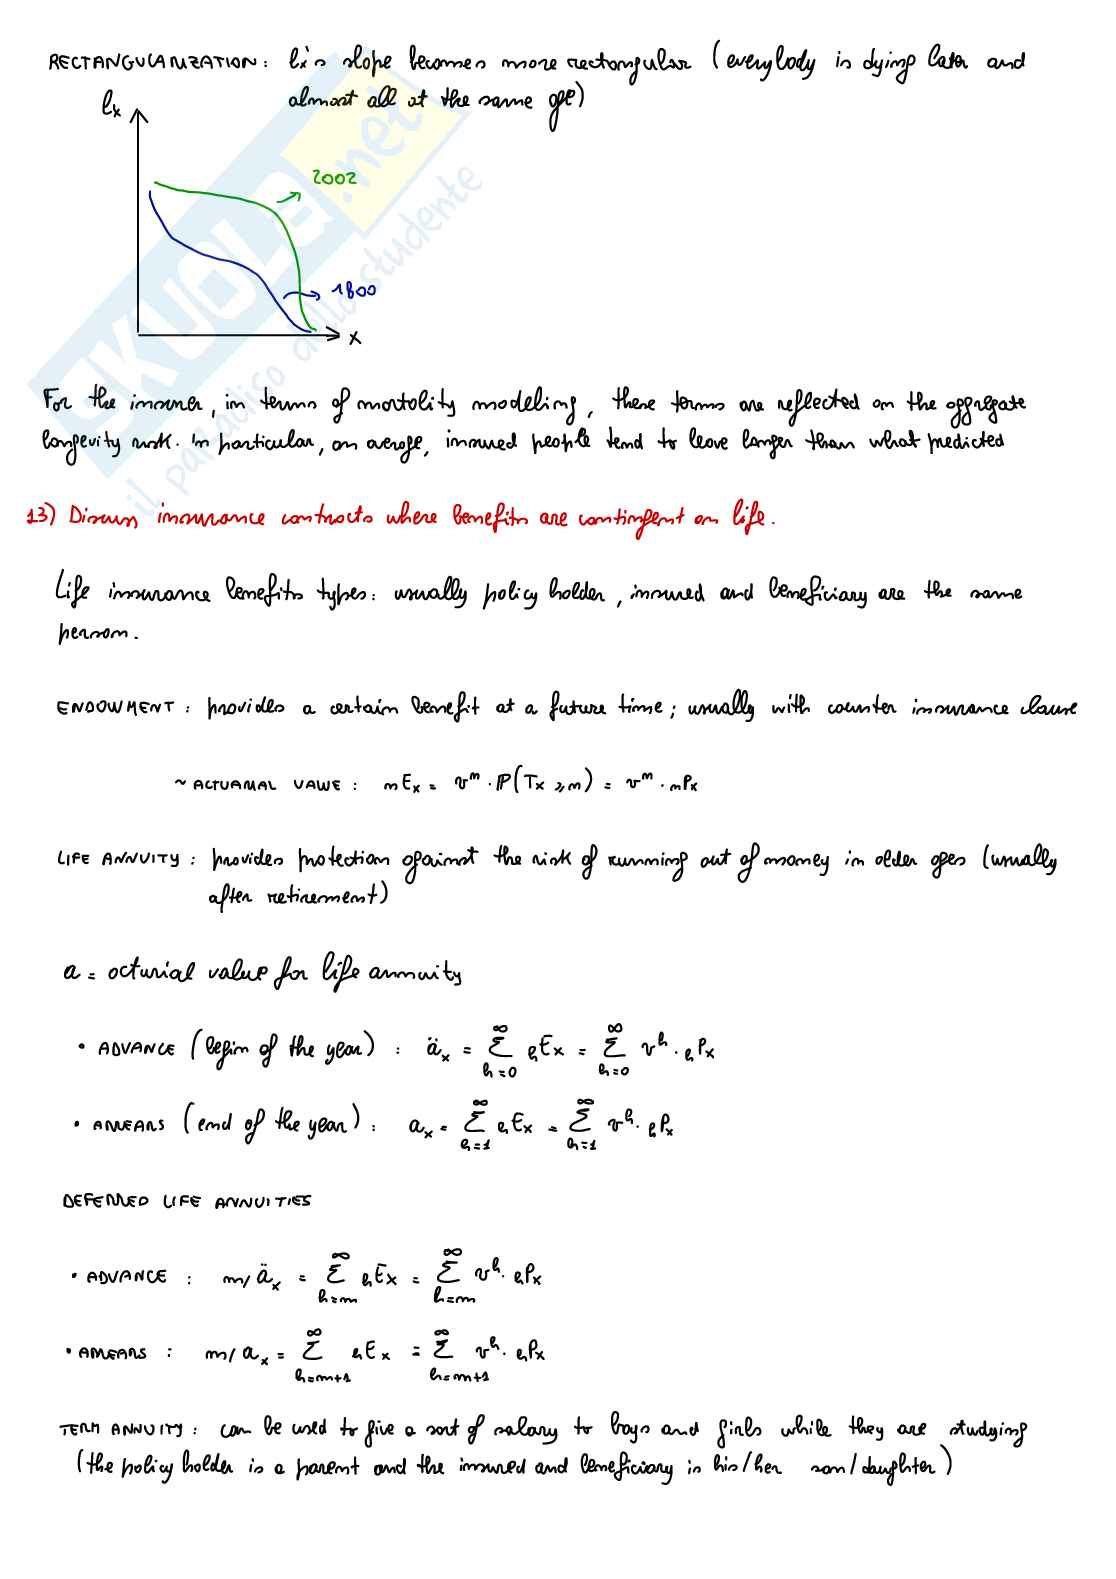 RECTANGULARIZATION: lx's slope becomes more rectangular (everybody is dying later and
almost all at the same age)
lx
2002
1800
x
For the insurer, in terms of mortality modeling, these terms are reflected on the aggregate
longevity risk. In particular, on average, insured people tend to leave longer than what predicted
13) Discuss insurance contracts where benefits are contingent on life.
Life insurance benefits types: usually policy holder, insured and beneficiary are the same
person.
ENDOWMENT: provides a certain benefit at a future time; usually with counter insurance clause
~ ACTUARIAL VALUE: nEx = vⁿ · ℙ(Tx ≥ n) = vⁿ · nPx
LIFE ANNUITY: provides protection against the risk of running out of money in older ages (usually
after retirement)
a = acturial value for life annuity
• ADVANCE (begin of the year): äx = ∞Σh=0 hEx = ∞Σh=0 vʰ · hPx
• ARREARS (end of the year): ax = ∞Σh=1 hEx = ∞Σh=1 vʰ · hPx
DEFERRED LIFE ANNUITIES
• ADVANCE: m/äx = ∞Σh=m hEx = ∞Σh=m vʰ · hPx
• ARREARS: m/ax = ∞Σh=m+1 hEx = ∞Σh=m+1 vʰ · hPx
TERM ANNUITY: can be used to give a sort of salary to boys and girls while they are studying
(the policy holder is a parent and the insured and beneficiary is his/her son/daughter)
SKUOLA.net
il paradiso dello studente